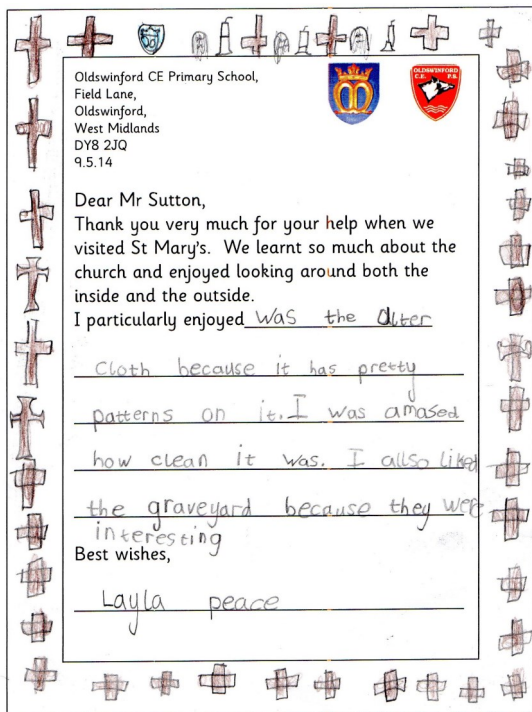 Oldswinford CE Primary School,
Field Lane,
Oldswinford,
West Midlands
DY8 2JQ
9.5.14
OLDSWINFORD
C.E. P.S.
Dear Mr Sutton,
Thank you very much for your help when we
visited St Mary's. We learnt so much about the
church and enjoyed looking around both the
inside and the outside.
I particularly enjoyed was the alter
cloth because it has pretty
patterns on it. I was amased
how clean it was. I allso liked
the graveyard because they were
interesting
Best wishes,
Layla peace